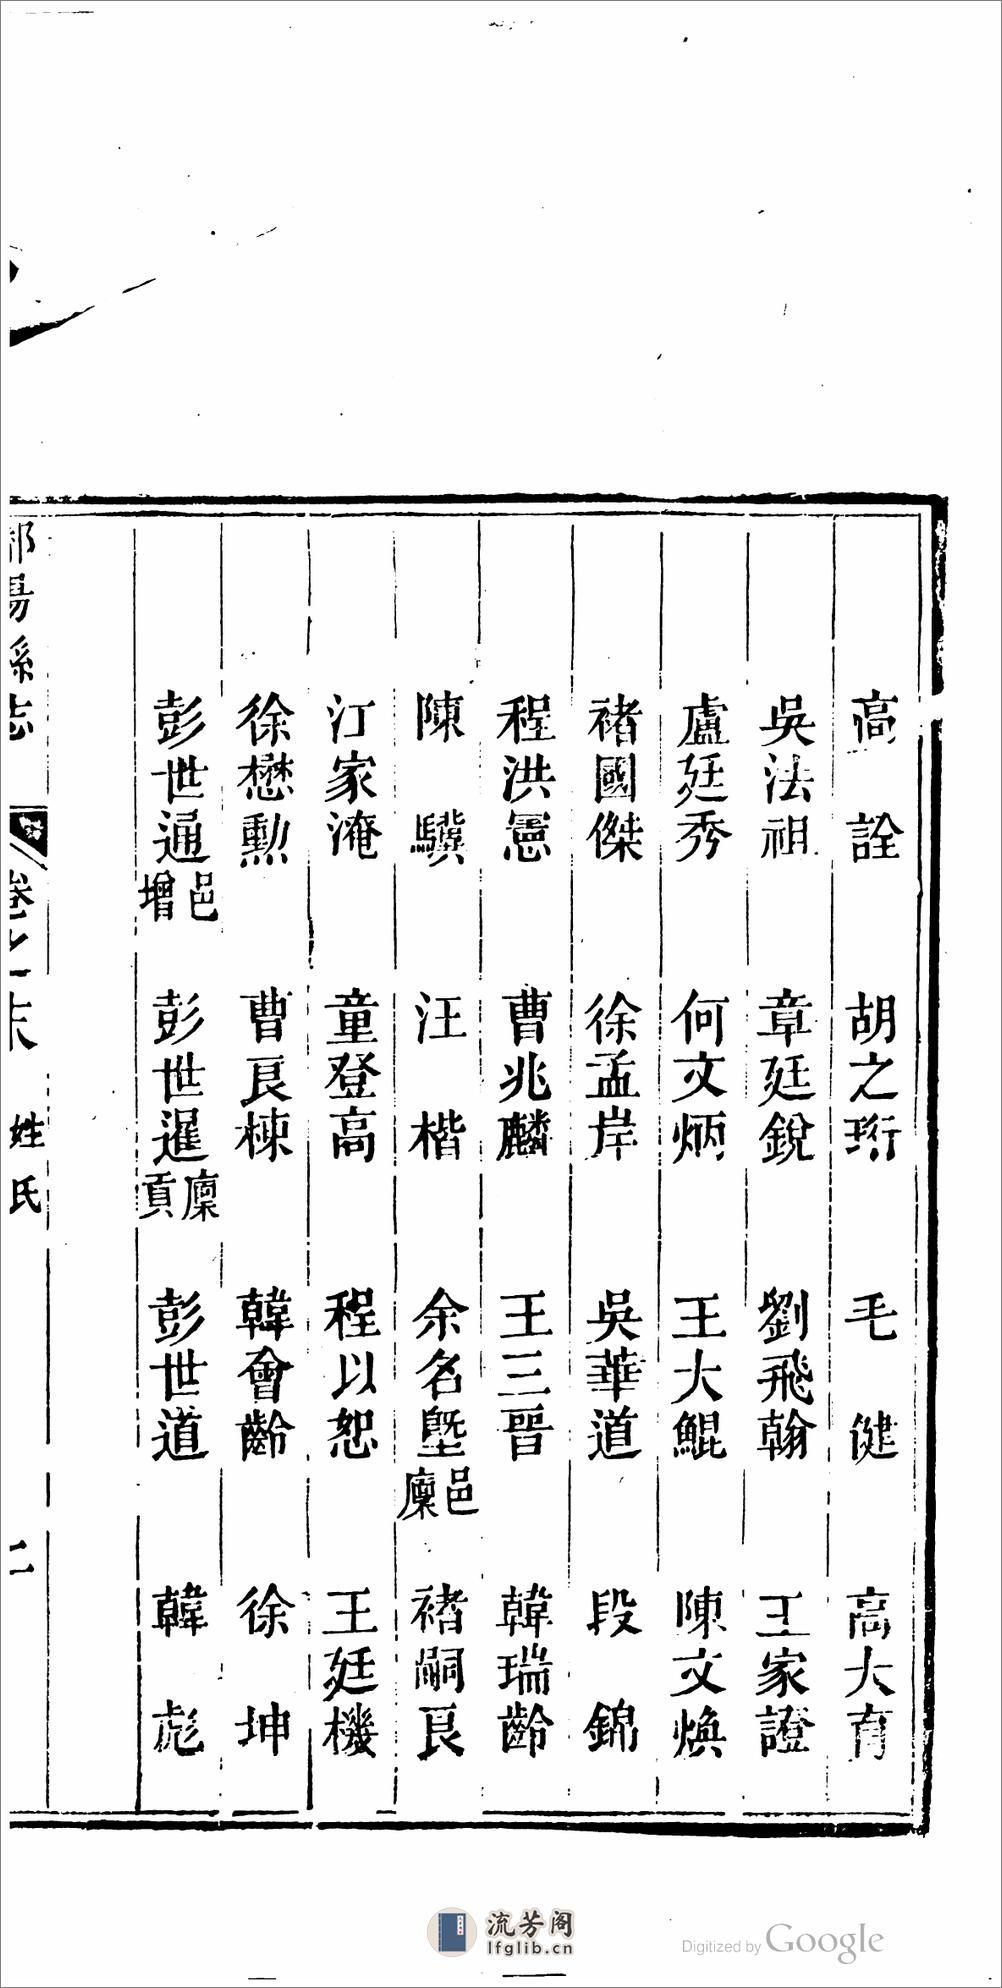 高詮 胡之珩 毛健 高大育
吳法祖 章廷銳 劉飛翰 王家證
盧廷秀 何文炳 王大鯤 陳文煥
褚國傑 徐孟岸 吳華道 段錦
程洪憲 曹兆麟 王三晉 韓瑞齡
陳驥 汪楷 余名塈邑廩 褚嗣良
汀家淹 童登高 程以恕 王廷機
徐懋勳 曹良棟 韓會齡 徐坤
彭世通邑增 彭世暹廩貢 彭世道 韓彪
縣志 卷之末 姓氏 二
流芳阁
lfglib.cn
Digitized by Google